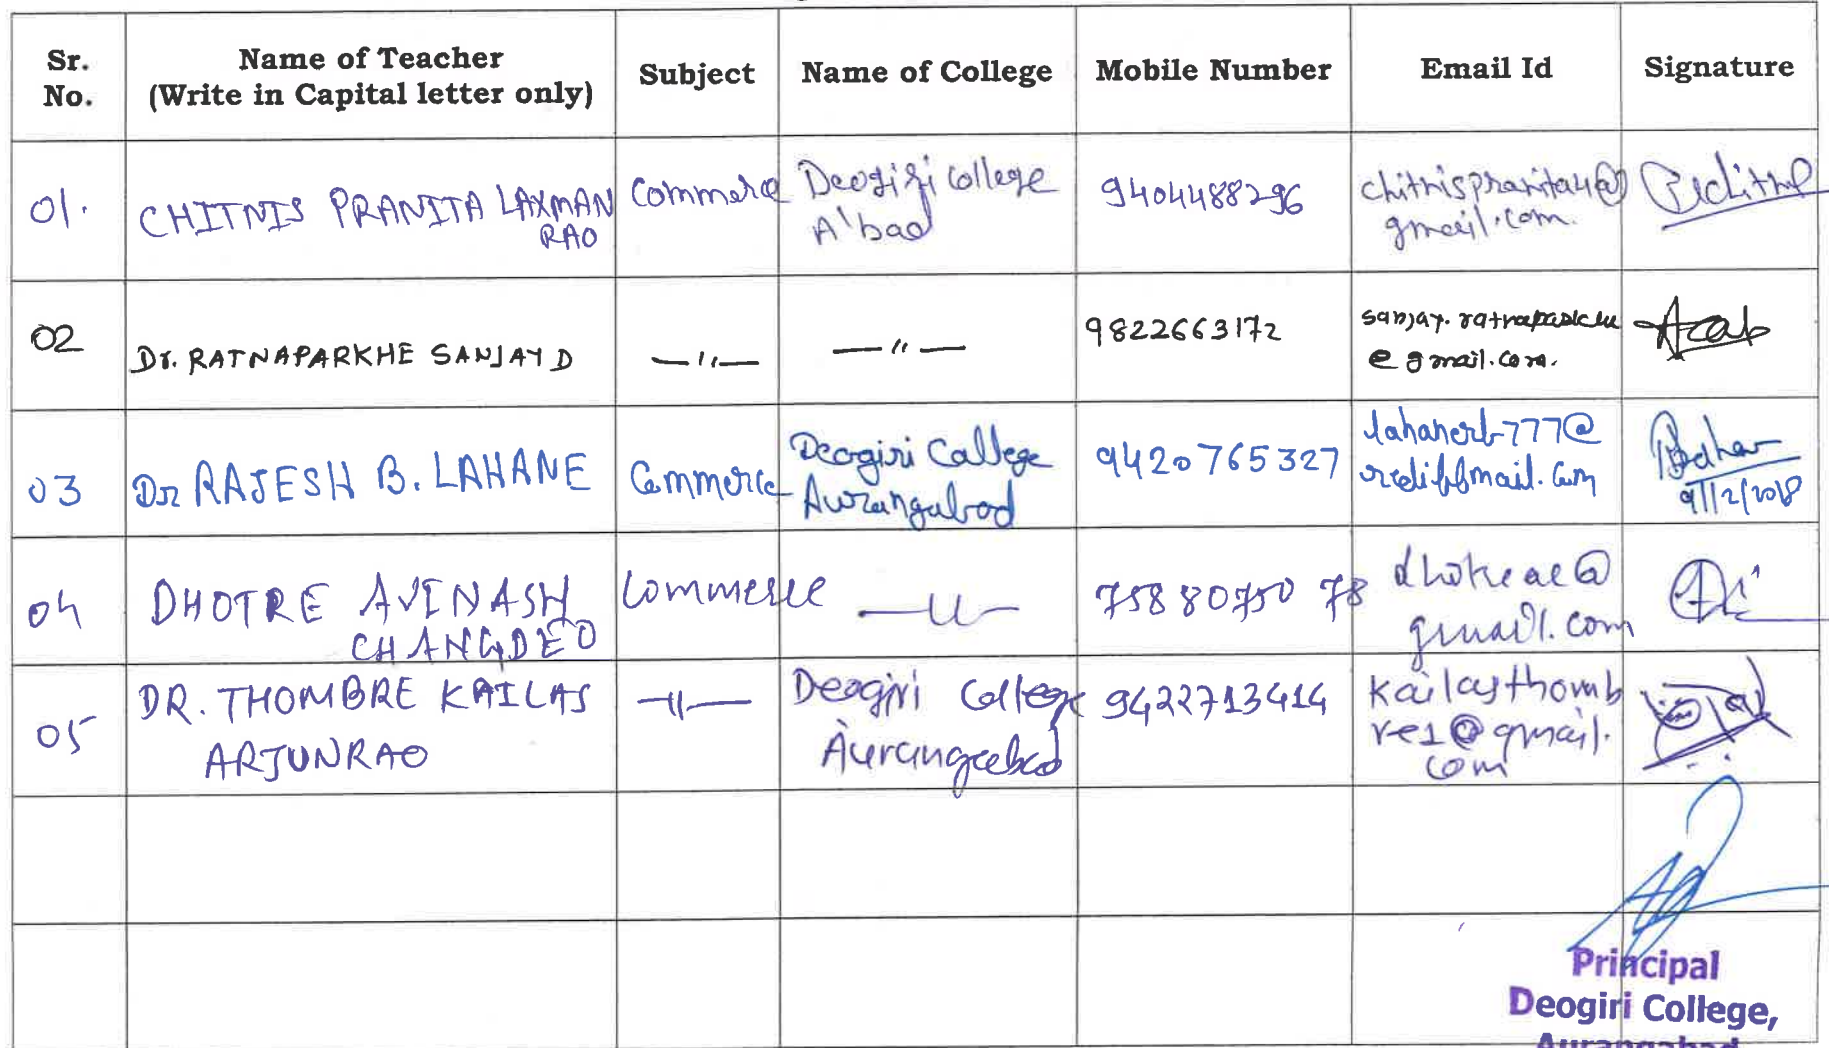 Sr. No.
Name of Teacher
(Write in Capital letter only)
Subject
Name of College
Mobile Number
Email Id
Signature
01.
CHITNIS PRANITA LAXMAN
RAO
Commerce
Deogiri College
A'bad
9404488296
chitnispranita4@
gmail.com.
02
Dr. RATNAPARKHE SANJAY D
—"—
—"—
9822663172
sanjay.ratnaparkhe
@gmail.com.
03
Dr RAJESH B. LAHANE
Commerce
Deogiri College
Aurangabad
9420765327
lahanerb777@
rediffmail.com
9/12/2018
04
DHOTRE AVINASH
CHANGDEO
Commerce
—"—
7588075078
gmail.com
05
DR. THOMBRE KAILAS
ARJUNRAO
—"—
Deogiri College
Aurangabad
9422713414
kailasthomb
re1@gmail.
com
Principal
Deogiri College,
Aurangabad